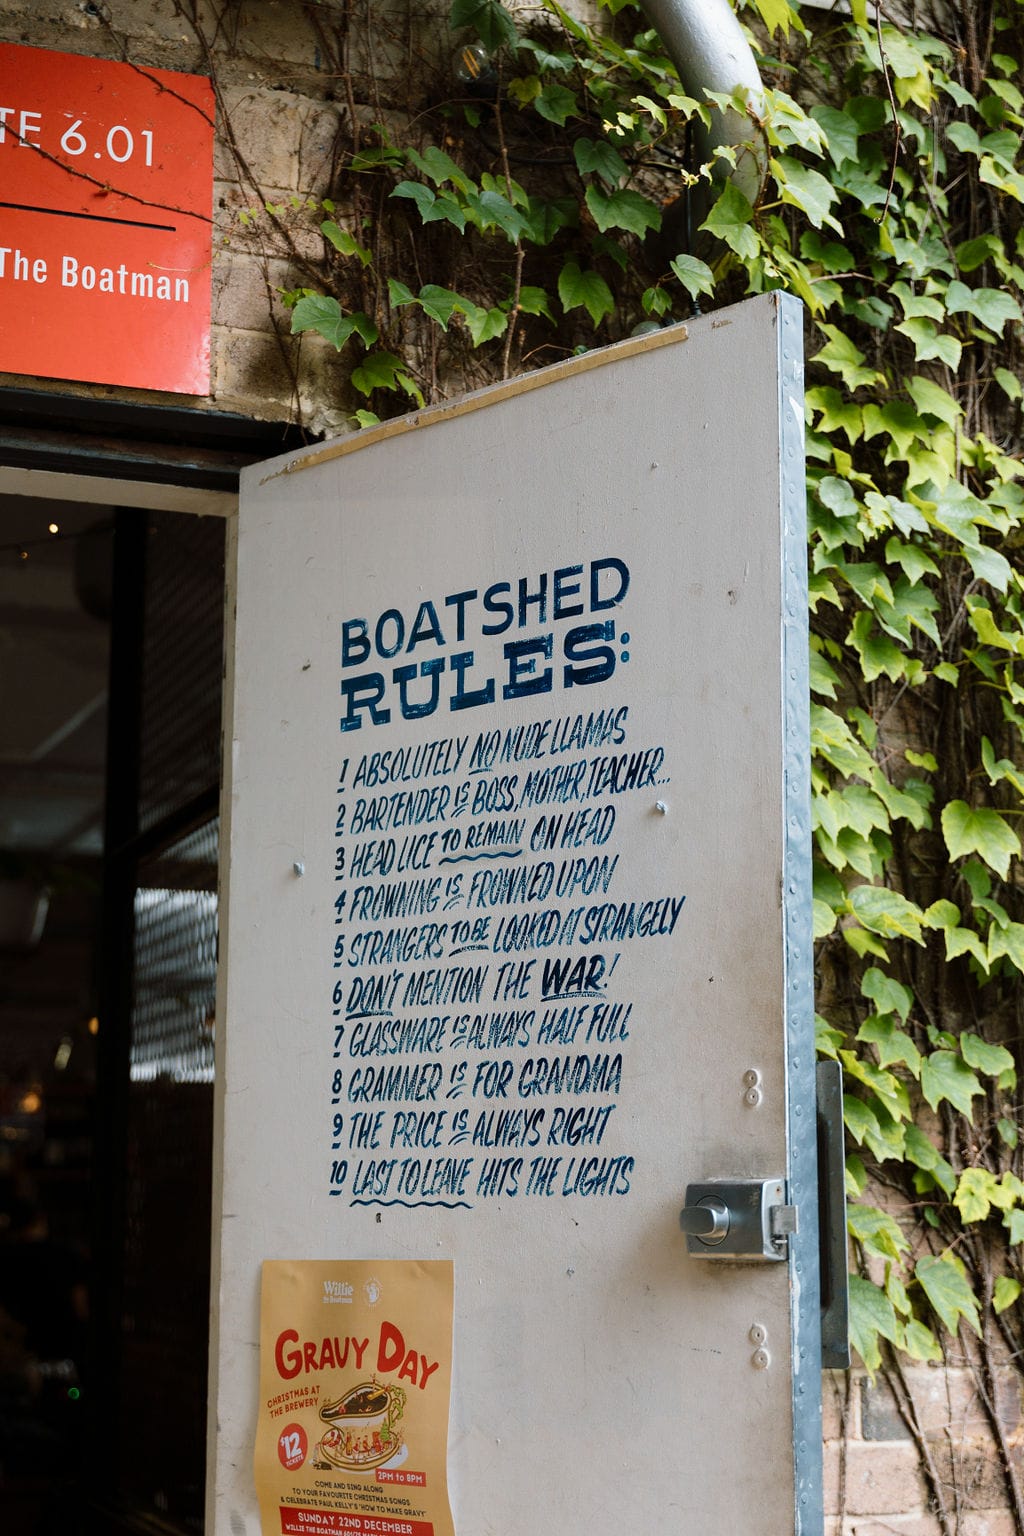 TE 6.01
The Boatman
BOATSHED
RULES:
1 ABSOLUTELY NO NUDE LLAMAS
2 BARTENDER IS BOSS, MOTHER, TEACHER...
3 HEAD LICE TO REMAIN ON HEAD
4 FROWNING IS FROWNED UPON
5 STRANGERS TO BE LOOKED AT STRANGELY
6 DON'T MENTION THE WAR!
7 GLASSWARE IS ALWAYS HALF FULL
8 GRAMMER IS FOR GRANDMA
9 THE PRICE IS ALWAYS RIGHT
10 LAST TO LEAVE HITS THE LIGHTS
Willie
the Boatman
GRAVY DAY
CHRISTMAS AT
THE BREWERY
$12
TICKETS
2PM to 8PM
COME AND SING ALONG
TO YOUR FAVOURITE CHRISTMAS SONGS
& CELEBRATE PAUL KELLY'S 'HOW TO MAKE GRAVY'
SUNDAY 22ND DECEMBER
WILLIE THE BOATMAN